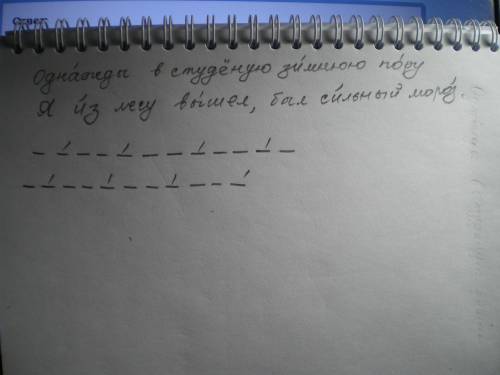 Ответ:
Одна́жды в студёную зи́мнюю по́ру
Я и́з лесу вы́шел, был си́льный моро́з.
_ _́ _ _ _́ _ _ _́ _ _ _́ _
_ _́ _ _ _́ _ _ _́ _ _ _́